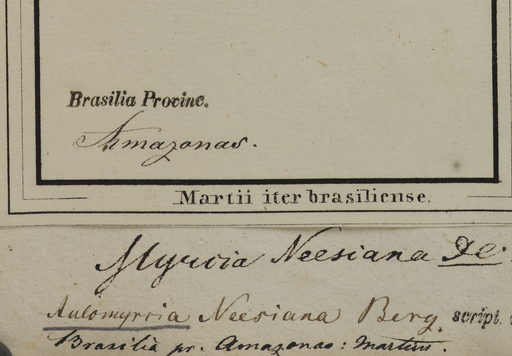 Brasilia Provinc.
Amazonas.
Martii iter brasiliense.
Myrcia Neesiana DC.
Aulomyrcia Neesiana Berg. script.
Brasilia pr. Amazonas: Martius